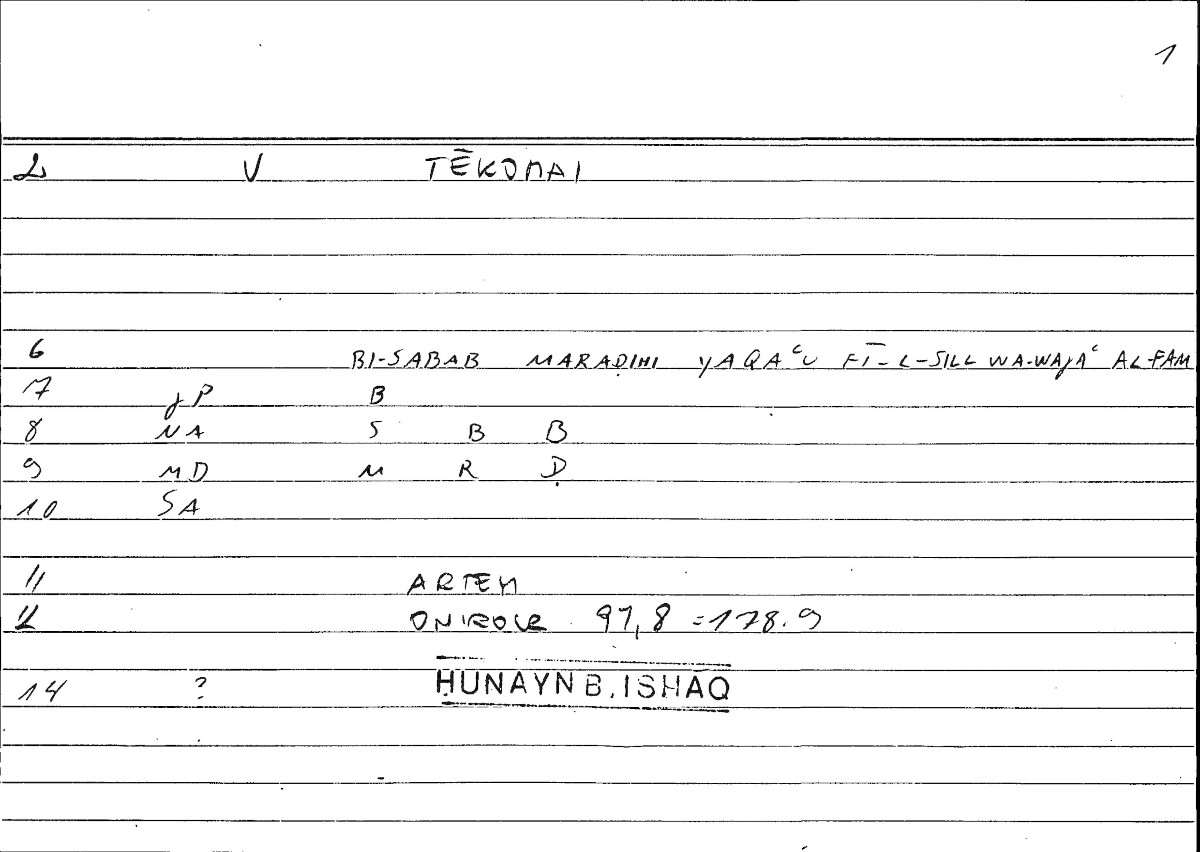 1
2 V TĒKOMAI
6 BI-SABAB MARAḌIHI YAQAʿU FĪ-L-SILL WA-WAJAʿ AL-FAM
7 JP B
8 NA S B B
9 MD M R Ḍ
10 SA
11 ARTEM
12 ONIROCR 97,8 = 178.9
14 ? ḤUNAYN B. ISḤAQ